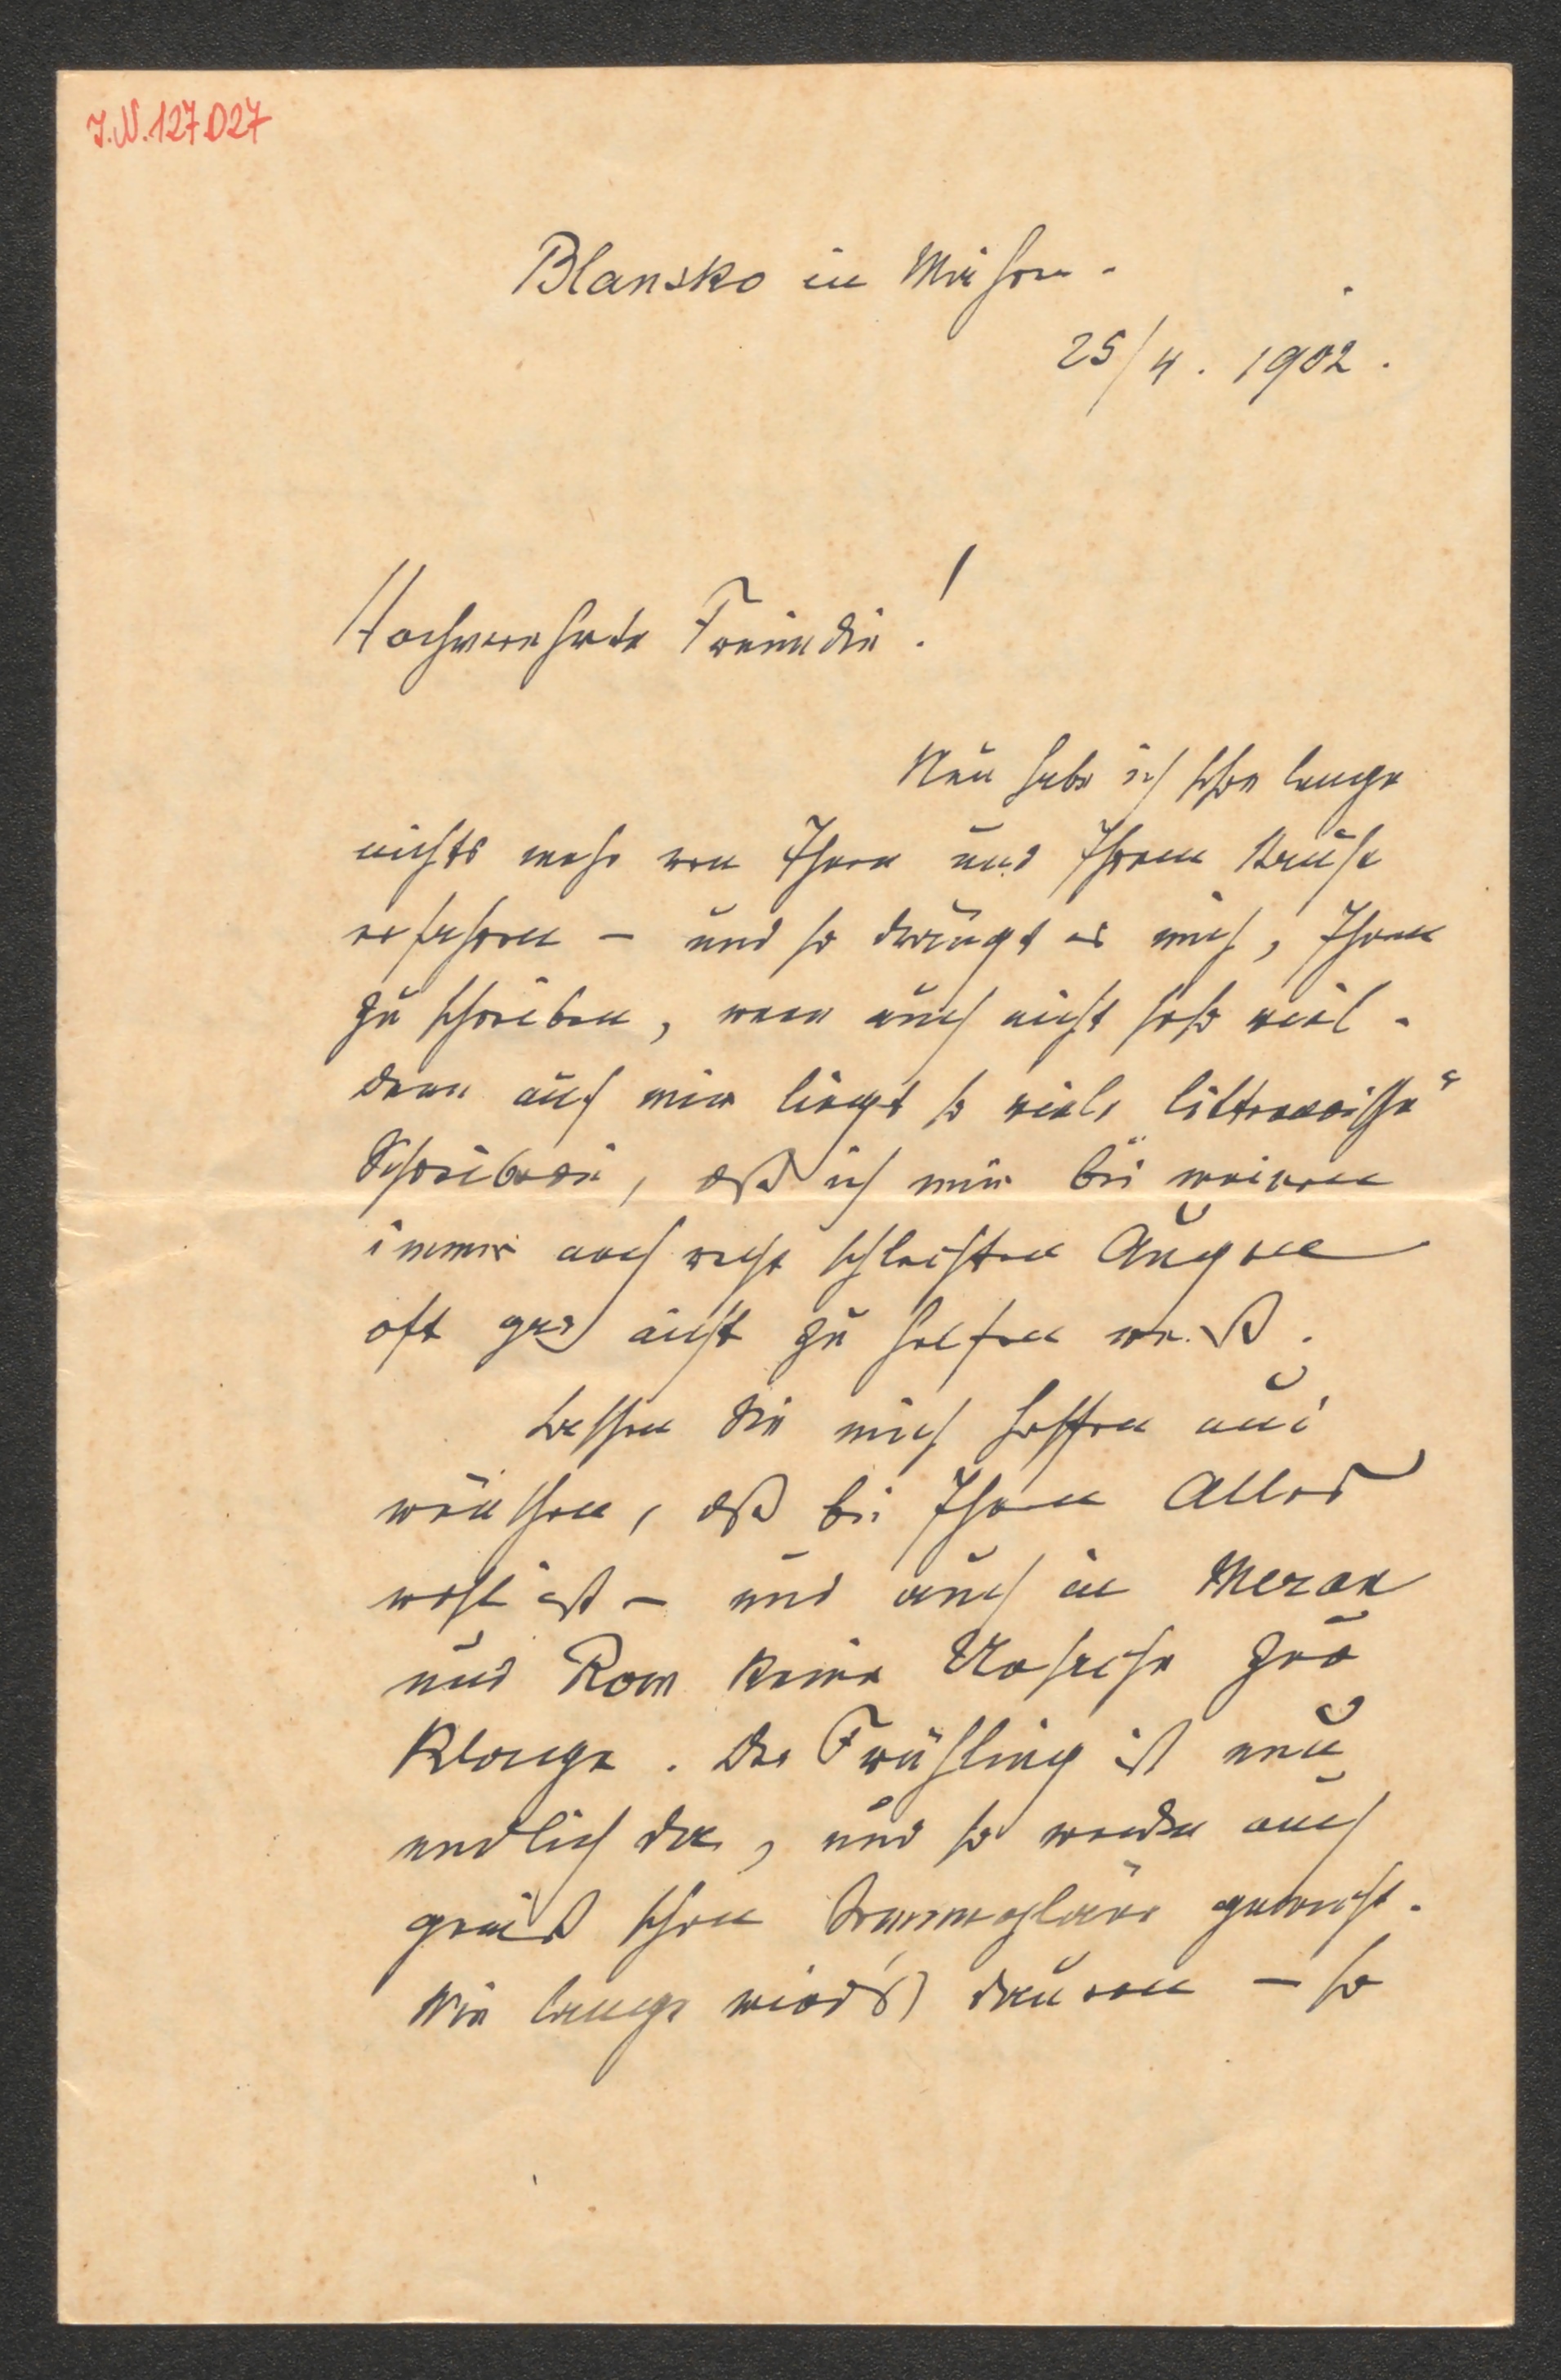 J.N. 127.027
Blansko in Mähren.
25/4. 1902.
Hochverehrte Freundin!
Nun habe ich schon lange
nichts mehr von Ihnen und Ihrem Kreise
erfahren – und so drängt es mich, Ihnen
zu schreiben, wenn auch nicht sehr viel.
Denn auf mir liegt so viele „litterarische“
Schreiberei, daß ich mir bei meinen
immer noch recht schlechten Augen
oft gar nicht zu helfen weiß.
Lassen Sie mich hoffen und
wünschen, daß bei Ihnen Alles
wohl ist – und auch in Meran
und Rom keine Ursache zur
Klage. Der Frühling ist nun
endlich da, und so werden auch
gewiß schon Sommerpläne gemacht.
Wie lange wird's dauern – so